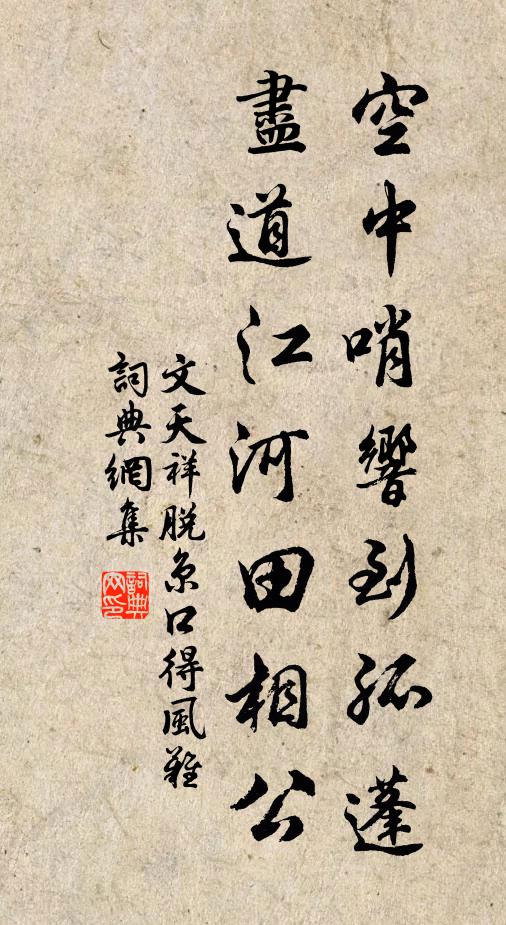 空中哨響到孤蓬
盡道江河田相公
文天祥脱京口得風難
詞典網集
詞典網印